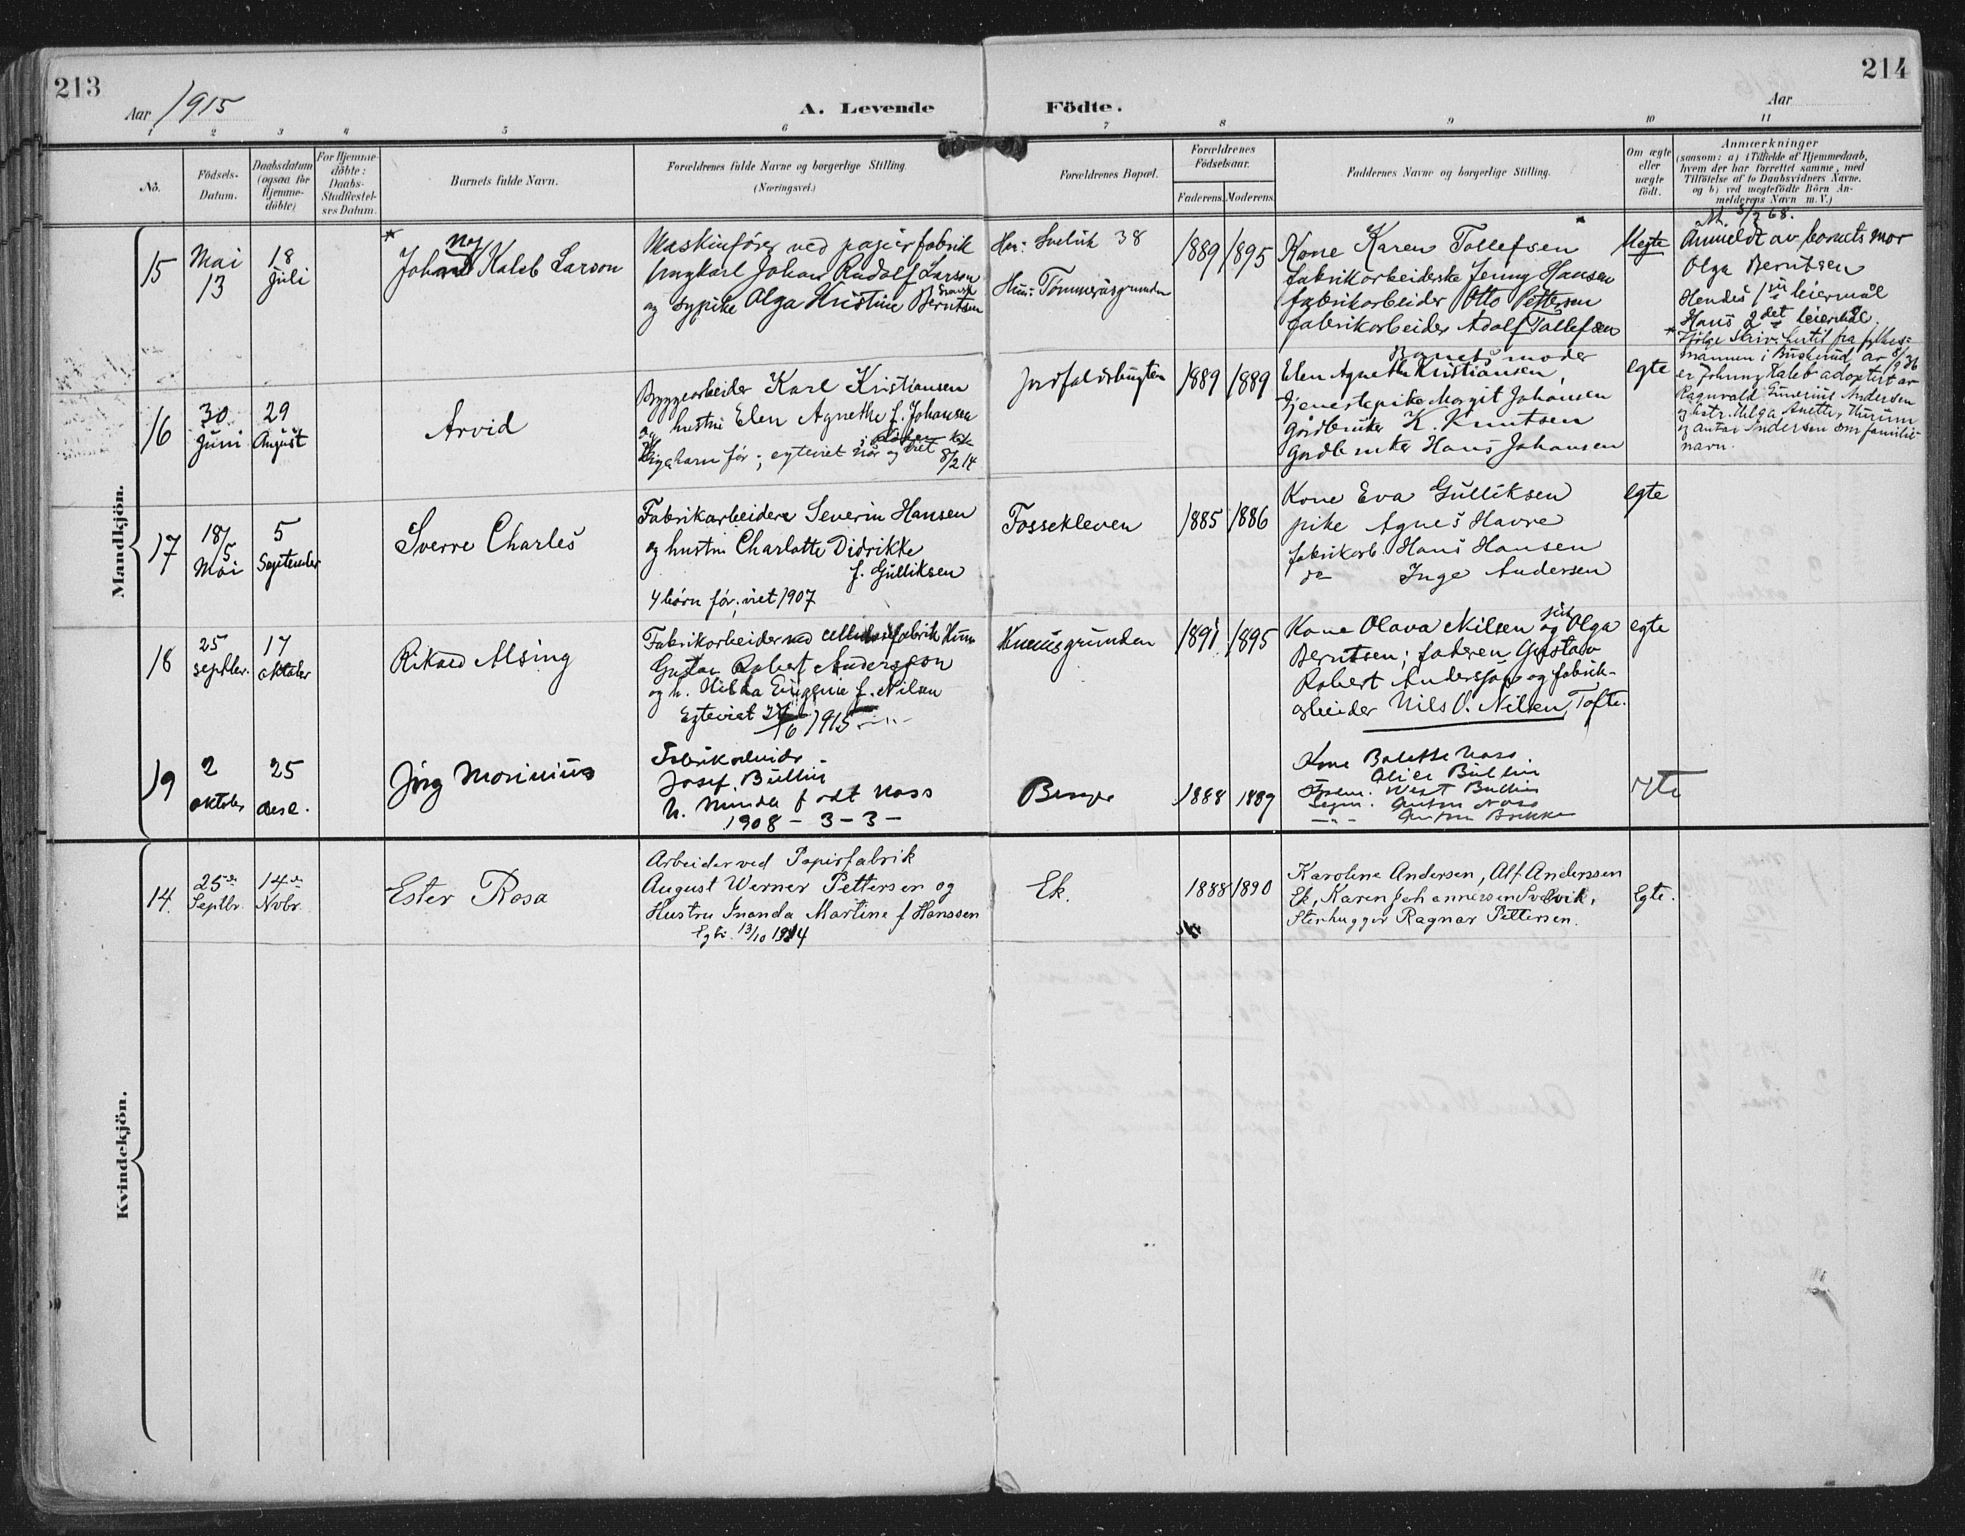 213
Aar 1915
A. Levende
Födte.
Aar
214
1 2 3 4 5 6 7 8 9 10 11
No.
Födsels-
Datum.
Daabsdatum
(ogsaa for
Hjemme-
döbte)
For Hjemme-
döbte:
Daabs-
Stadfæstel-
ses Datum.
Barnets fulde Navn.
Forældrenes fulde Navne og borgerlige Stilling.
(Næringsvei.)
Forældrenes Bopæl.
Forældrenes
Födselsaar.
Faderens. Moderens.
Faddernes Navne og borgerlige Stilling.
Om ægte
eller
uægte
födt.
Anmærkninger
(saasom: a) i Tilfælde af Hjemmedaab,
hvem der har forrettet samme, med
Tilföielse af to Daabsvidners Navne.
og b) ved uægtefödte Börn An-
melderens Navn m. V.)
Mandkjön.
15
Mai
13
18
Juli
Johnny Kaleb Larson
Maskinfører ved papirfabrik
Ungkarl Johan Rudolf Larson
svensk
og sypike Olga Kristine Berntsen
Han: Svelvik 38
Hun: Tømmeråsgrunden
1889 1895
Kone Karen Tollefsen
fabrikarbeiderske Jenny Hansen
fabrikarbeider Otto Pettersen
fabrikarbeider Adolf Tollefsen
Uegte
Anmeldt av barnets mor
Olga Berntsen
Hendes 1ste leiermål
Hans 2det leiermål.
* Ifølge skriv. hertil fra fylkes-
mannen i Buskerud av 8/9 36
er Johnny Kaleb adoptert av
Ragnvald Andersen
og Andersen som familie-
navn.
16
30
Juni
29
August
Arvid
Byggearbeider Karl Kristiansen
og hustru Elen Agnethe f. Johansen
8/2 14
1889 1889
Barnets moder
Elen Agnethe Kristiansen,
tjenestepike Margit Johansen
Gårdbruker K. Knutsen
Gårdbruker Hans Johansen
egte
17
18/5
Mai
5
September
Sverre Charles
Fabrikarbeider Severin Hansen
og hustru Charlotte Didrikke
f. Gulliksen
4 børn før; viet 1907
Fossekleven
1885 1886
Kone Eva Gulliksen
pike Agnes Havre
fabrikarb. Hans Hansen
do Inge Andersen
egte
18
25
septbr.
17
oktober
Rikard Alsing
Fabrikarbeider ved cellulosefabrik Hurum
Gustav Robert Andersson
og h. Hilda Eugenie f. Nilsen
Egteviet 1915
1891 1895
Kone Olava Nilsen og Olga
Berntsen; faderen Gustav
Robert Andersson og fabrik-
arbeider Nils O. Nilsen, Tofte.
egte
19
2
oktober
25
dese.
Jörg Marinius
Fabrikarbeider
Josef Bullin
h. Minda født Nass
1908 - 3 - 3 -
Berger
1888 1889
Kone Balette Nass.
Alice Bullin
West Bullin
Anton Nass
Anton Brekke
egte
Kvindekjön.
14.
25de
Septbr
14de
Novbr
Ester Rosa
Arbeider ved Papirfabrik
August Werner Pettersen og
Hustru Inanda Martine f Hanssen
Egtv. 13/10 1914
Ek.
1888 1890
Karoline Andersen, Alf Anderssen
Ek, Karen Johannessen Svelvik,
Stenhugger Ragnar Pettersen.
Egte.